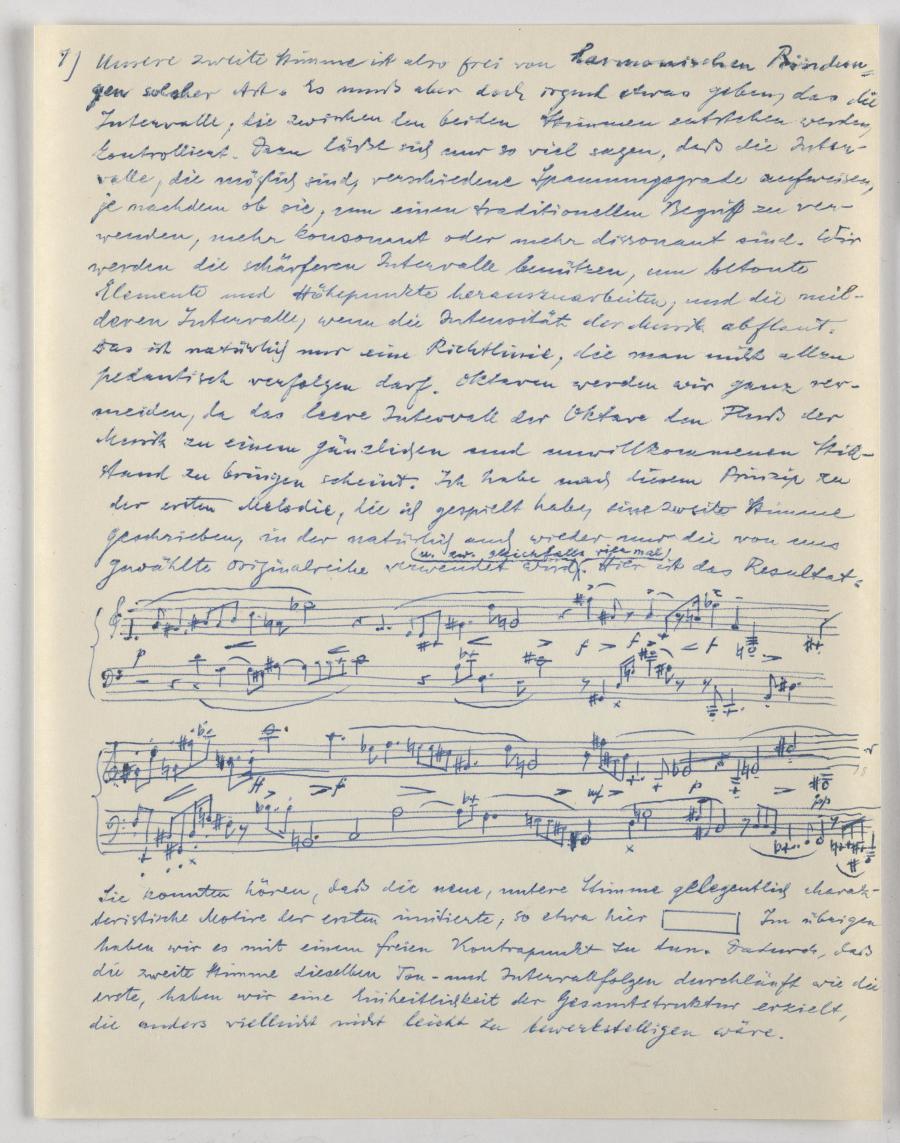 7) Unsere zweite Stimme ist also frei von harmonischen Bindun-
gen solcher Art. Es muß aber doch irgend etwas geben, das die
Intervalle, die zwischen den beiden Stimmen entstehen werden,
kontrolliert. Dazu läßt sich nur so viel sagen, daß die Inter-
valle, die möglich sind, verschiedene Spannungsgrade aufweisen,
je nachdem ob sie, um einen traditionellen Begriff zu ver-
wenden, mehr konsonant oder mehr dissonant sind. Wir
werden die schärferen Intervalle benützen, um betonte
Elemente und Höhepunkte herauszuarbeiten, und die mil-
deren Intervalle, wenn die Intensität der Musik abflaut.
Das ist natürlich nur eine Richtlinie, die man nicht allzu
pedantisch verfolgen darf. Oktaven werden wir ganz ver-
meiden, da das leere Intervall der Oktave den Fluß der
Musik zu einem gänzlichen und unwillkommenen Still-
stand zu bringen scheint. Ich habe nach diesem Prinzip zu
der ersten Melodie, die ich gespielt habe, eine zweite Stimme
geschrieben, in der natürlich auch wieder nur die von uns
(u. zw. gleichfalls vier mal)
gewählte Originalreihe verwendet wird. Hier ist das Resultat:
p f f f
ff f mf p pp
Sie konnten hören, daß die neue, untere Stimme gelegentlich charak-
teristische Motive der ersten imitierte, so etwa hier Im übrigen
haben wir es mit einem freien Kontrapunkt zu tun. Dadurch, daß
die zweite Stimme dieselben Ton- und Intervallfolgen durchläuft wie die
erste, haben wir eine Einheitlichkeit der Gesamtstruktur erzielt,
die anders vielleicht nicht leicht zu bewerkstelligen wäre.